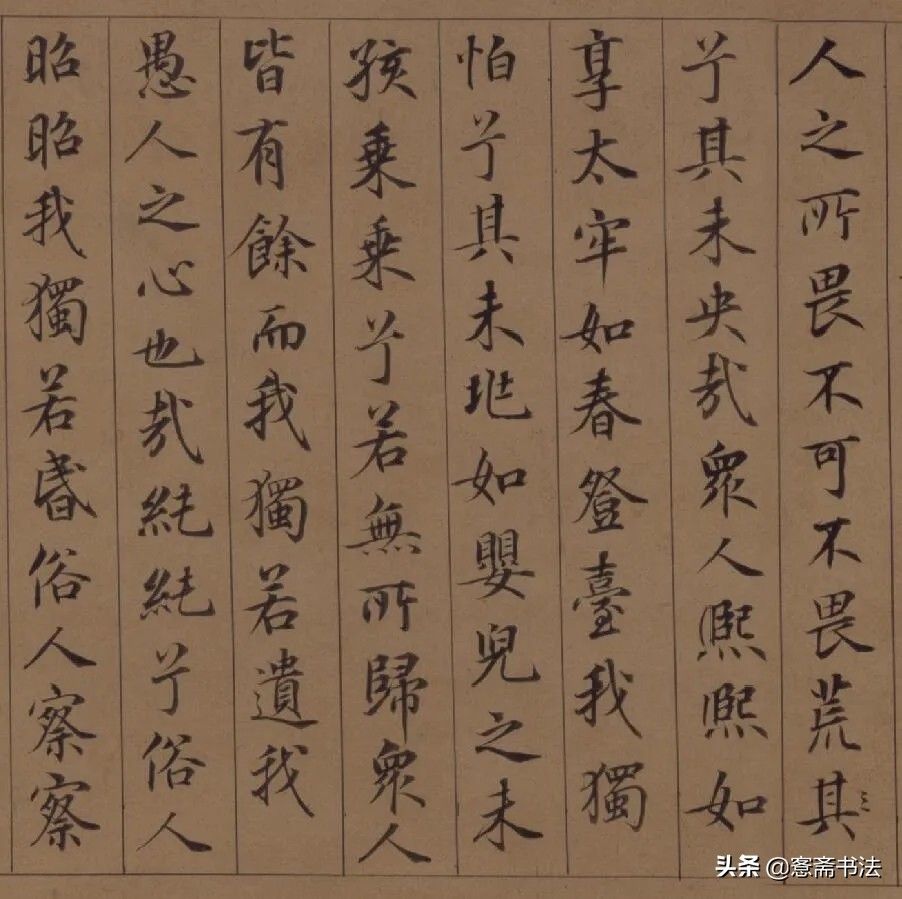 人之所畏不可不畏荒其
兮其未央哉衆人熙熙如
享太牢如春登臺我獨
怕兮其未兆如嬰兒之未
孩乘乘兮若無所歸衆人
皆有餘而我獨若遺我
愚人之心也哉純純兮俗人
昭昭我獨若昬俗人察察
头条 @愙斋书法